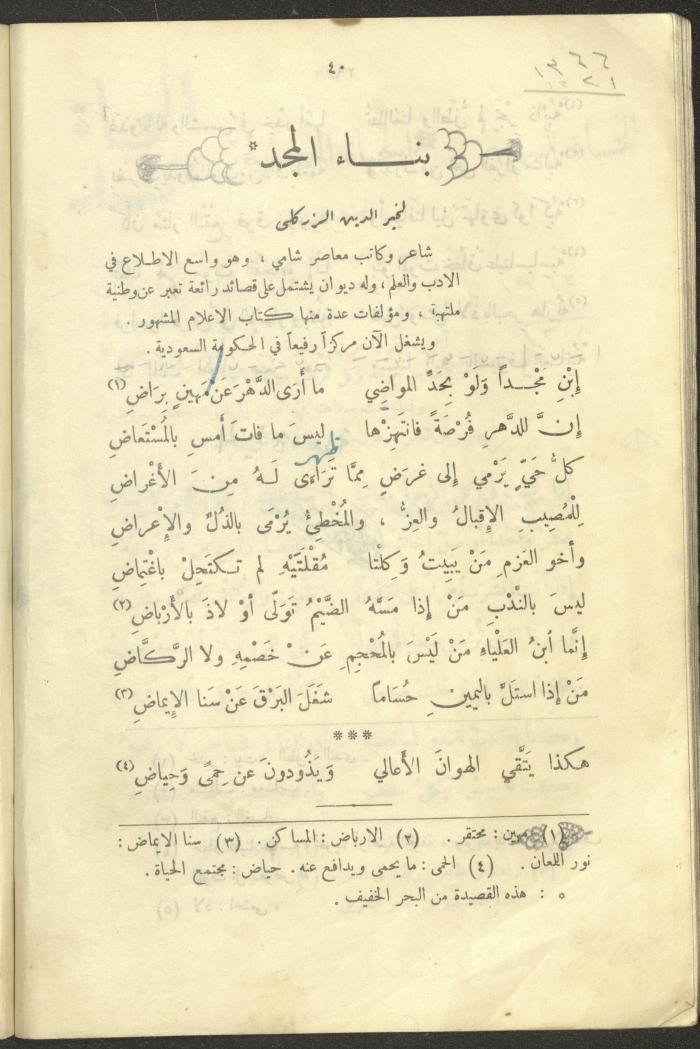 ٤٠
١٣٤٤
١٢١
بنـــاء المجد*
لخير الدين الزركلي
شاعر وكاتب معاصر شامي ، وهو واسع الاطـلاع في
الادب والعلم ، وله ديوان يشتمل على قصائد رائعة تعبر عن وطنية
ملتهبة ، ومؤلفات عدة منها كتاب الاعلام المشهور .
ويشغل الآن مركزاً رفيعاً في الحكومة السعودية .
إِبْنِ مَجْـــداً وَلَوْ بِحَدِّ المواضِي ما أَرَى الدَّهْرَ عَنْ مَهِينٍ بِرَاضِ (١)
إِنَّ للدَّهرِ فُرْصَةً فانتَهِزْها ليسَ ما فاتَ أَمسِ بالمُسْتَعاضِ
تظهر
كلُّ حَيٍّ يَرْمي إلى غرَضٍ مِمَّا تَرَاءَى لَـهُ مِنَ الأَغْراضِ
لِلْمُصِيبِ الإِقبالُ والعِزُّ ، والمُخْطِئُ يُرْمَى بالذُّلِّ والإِعْراضِ
وأخو العَزمِ مَنْ يَبِيتُ وَكِلْتا مُقْلَتَيْهِ لم تـكتَحِلْ باغْتِماضِ
ليسَ بالنَّدْبِ مَنْ إذا مَسَّهُ الضَّيْمُ تَوَلّى أوْ لاذَ بالأَرْباضِ (٢)
إِنَّما ابنُ العَلْياءِ مَنْ لَيْسَ بالمُحْجِمِ عَنْ خَصْمِهِ ولا الرَّكَّاضِ
مَنْ إذا استَلَّ باليمينِ حُسَاماً شَغَلَ البَرْقَ عَنْ سَنا الإِيماضِ (٣)
***
هكذا يَتَّقي الهوانَ الأَعالي وَيَذُودونَ عن حِمىً وَحِياضِ (٤)
(١) مهين : محتقر . (٢) الارباض : المساكن . (٣) سنا الايماض :
نور اللمعان . (٤) الحمى : ما يحمى ويدافع عنه . حياض : مجتمع الحياة .
* : هذه القصيدة من البحر الخفيف .